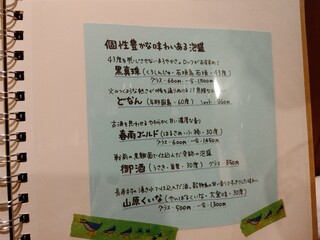 個性豊かな味わいある泡盛
43度を思わせないまろやかさ。ロックがおすすめ!
黒真珠 (くろしんじゅ・石垣島 石垣・43度)
グラス-600円 一合-1,500円
どなん (与那国島・60度)
古酒を思わせるやわらかく甘い濃厚な香り
春雨ゴールド (はるさめ・小禄・30度)
グラス-600円 一合-1,450円
御酒 (うさき・首里・30度) グラス-850円
山原くいな (やんばるくいな・大宜味・30度)
グラス-500円 一合-1,300円